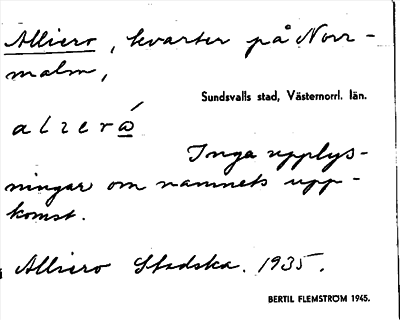 Alliero, kvarter på Norr-
malm,
Sundsvalls stad, Västernorrl. län.
Inga upplys-
ningar om namnets upp-
komst.
Alliero Stadska. 1935.
BERTIL FLEMSTRÖM 1945.